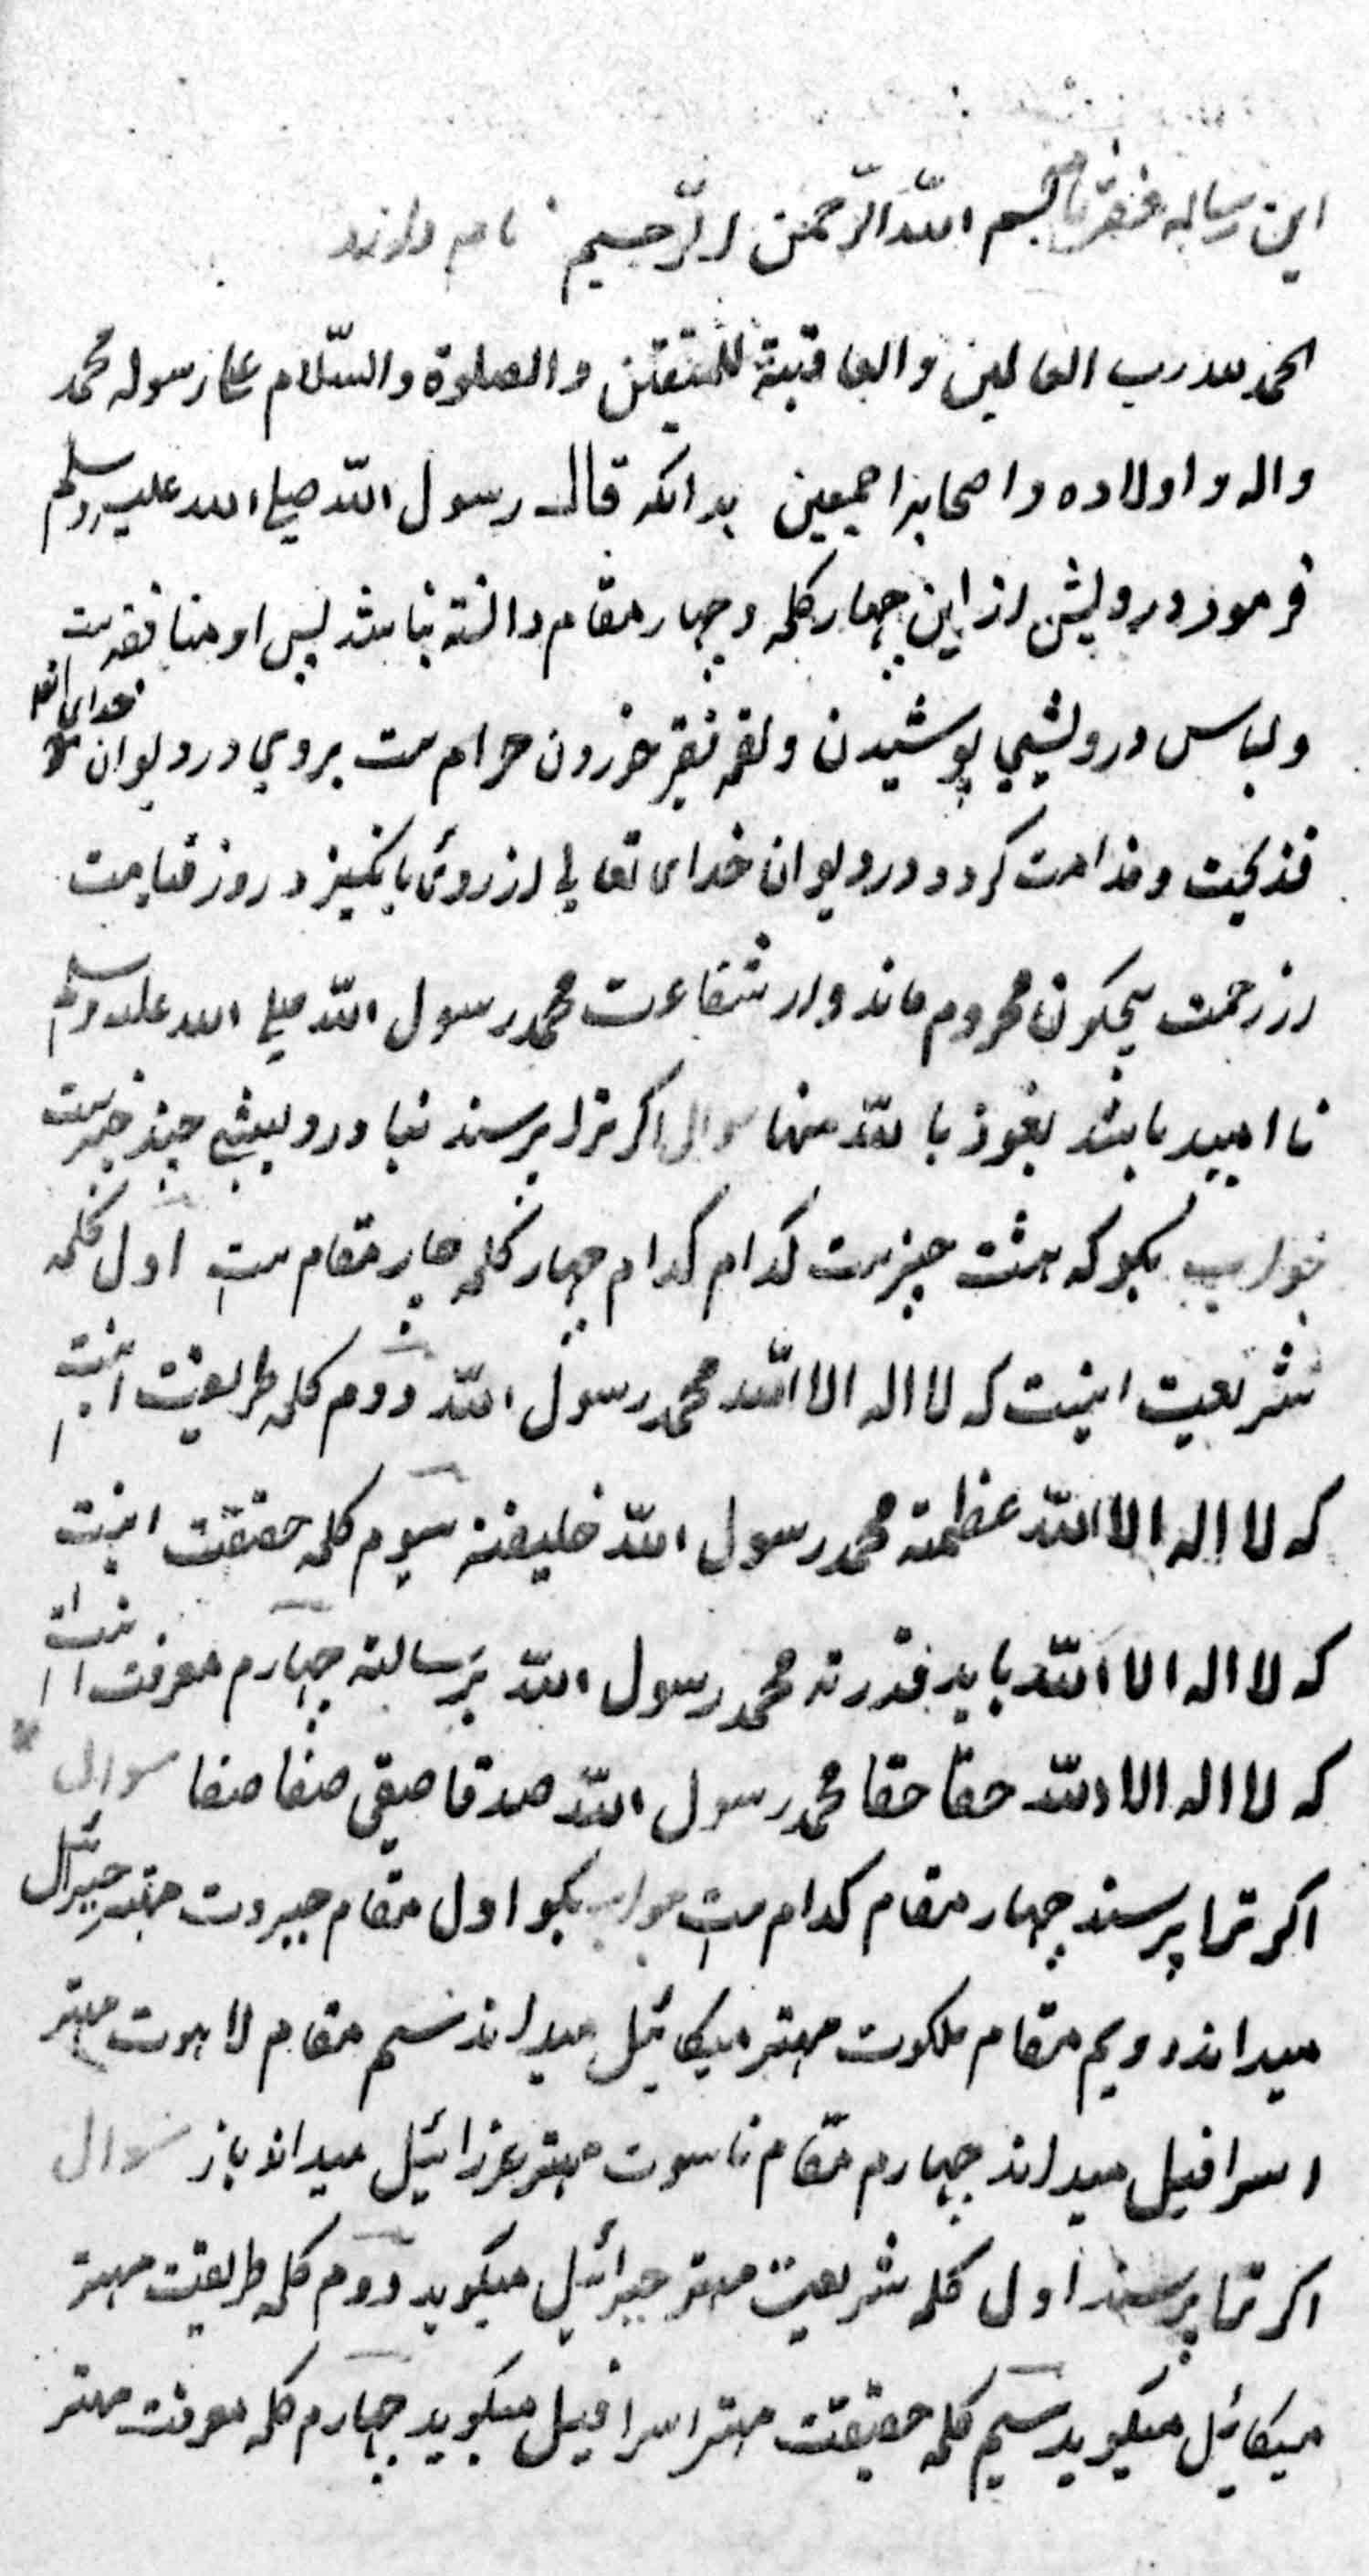 این رساله فقرنامه بسم الله الرّحمن الرّحیم نام دارند
الحمد لله رب العالمین والعاقبة للمتقین والصلوة والسّلام علی رسوله محمد
واله و اولاده واصحابه اجمعین بدانکه قال رسول الله صلی الله علیه وسلم
فرمود درویش از این چهار کلمه و چهار مقام دانسته نباشد پس او منافقست
ولباس درویشی پوشیدن ولقمه فقر خوردن حرام ست بروی در دیوان خدای
فذیحت وندامت کردد در دیوان خدای تعالی از روی پاکیزد روز قیامت
از رحمت بیچکون محروم ماند واز شفاعت محمد رسول الله صلی الله علیه وسلم
ناامید باشد نعوذ بالله منها سوال اکر ترا پرسند بنا درویشی چند چیزست
جواب بکو که هشت چیزست کدام کدام چهار کلمه چار مقام ست اول کلمه
شریعت اینست که لا اله الا الله محمد رسول الله دوم کلمه طریقت اینست
که لا اله الا الله عظمته محمد رسول الله خلیفته سیوم کلمه حقیقت اینست
که لا اله الا الله باید قدرته محمد رسول الله برسالته چهارم معرفت اینست
که لا اله الا الله حقا حقا محمد رسول الله صدقا صفا صفا سوال
اکر ترا پرسند چهار مقام کدام ست جواب بکو اول مقام جبروت مهتر جبرائیل
میداند دویم مقام ملکوت مهتر میکائیل میداند سیم مقام لاهوت مهتر
اسرافیل میداند چهارم مقام ناسوت مهتر عزرائیل میداند باز سوال
اکر ترا پرسند اول کلمه شریعت مهتر جبرائیل میکوید دوم کلمه طریقت مهتر
میکائیل میکوید سیم کلمه حقیقت مهتر اسرافیل میکوید چهارم کلمه معرفت مهتر